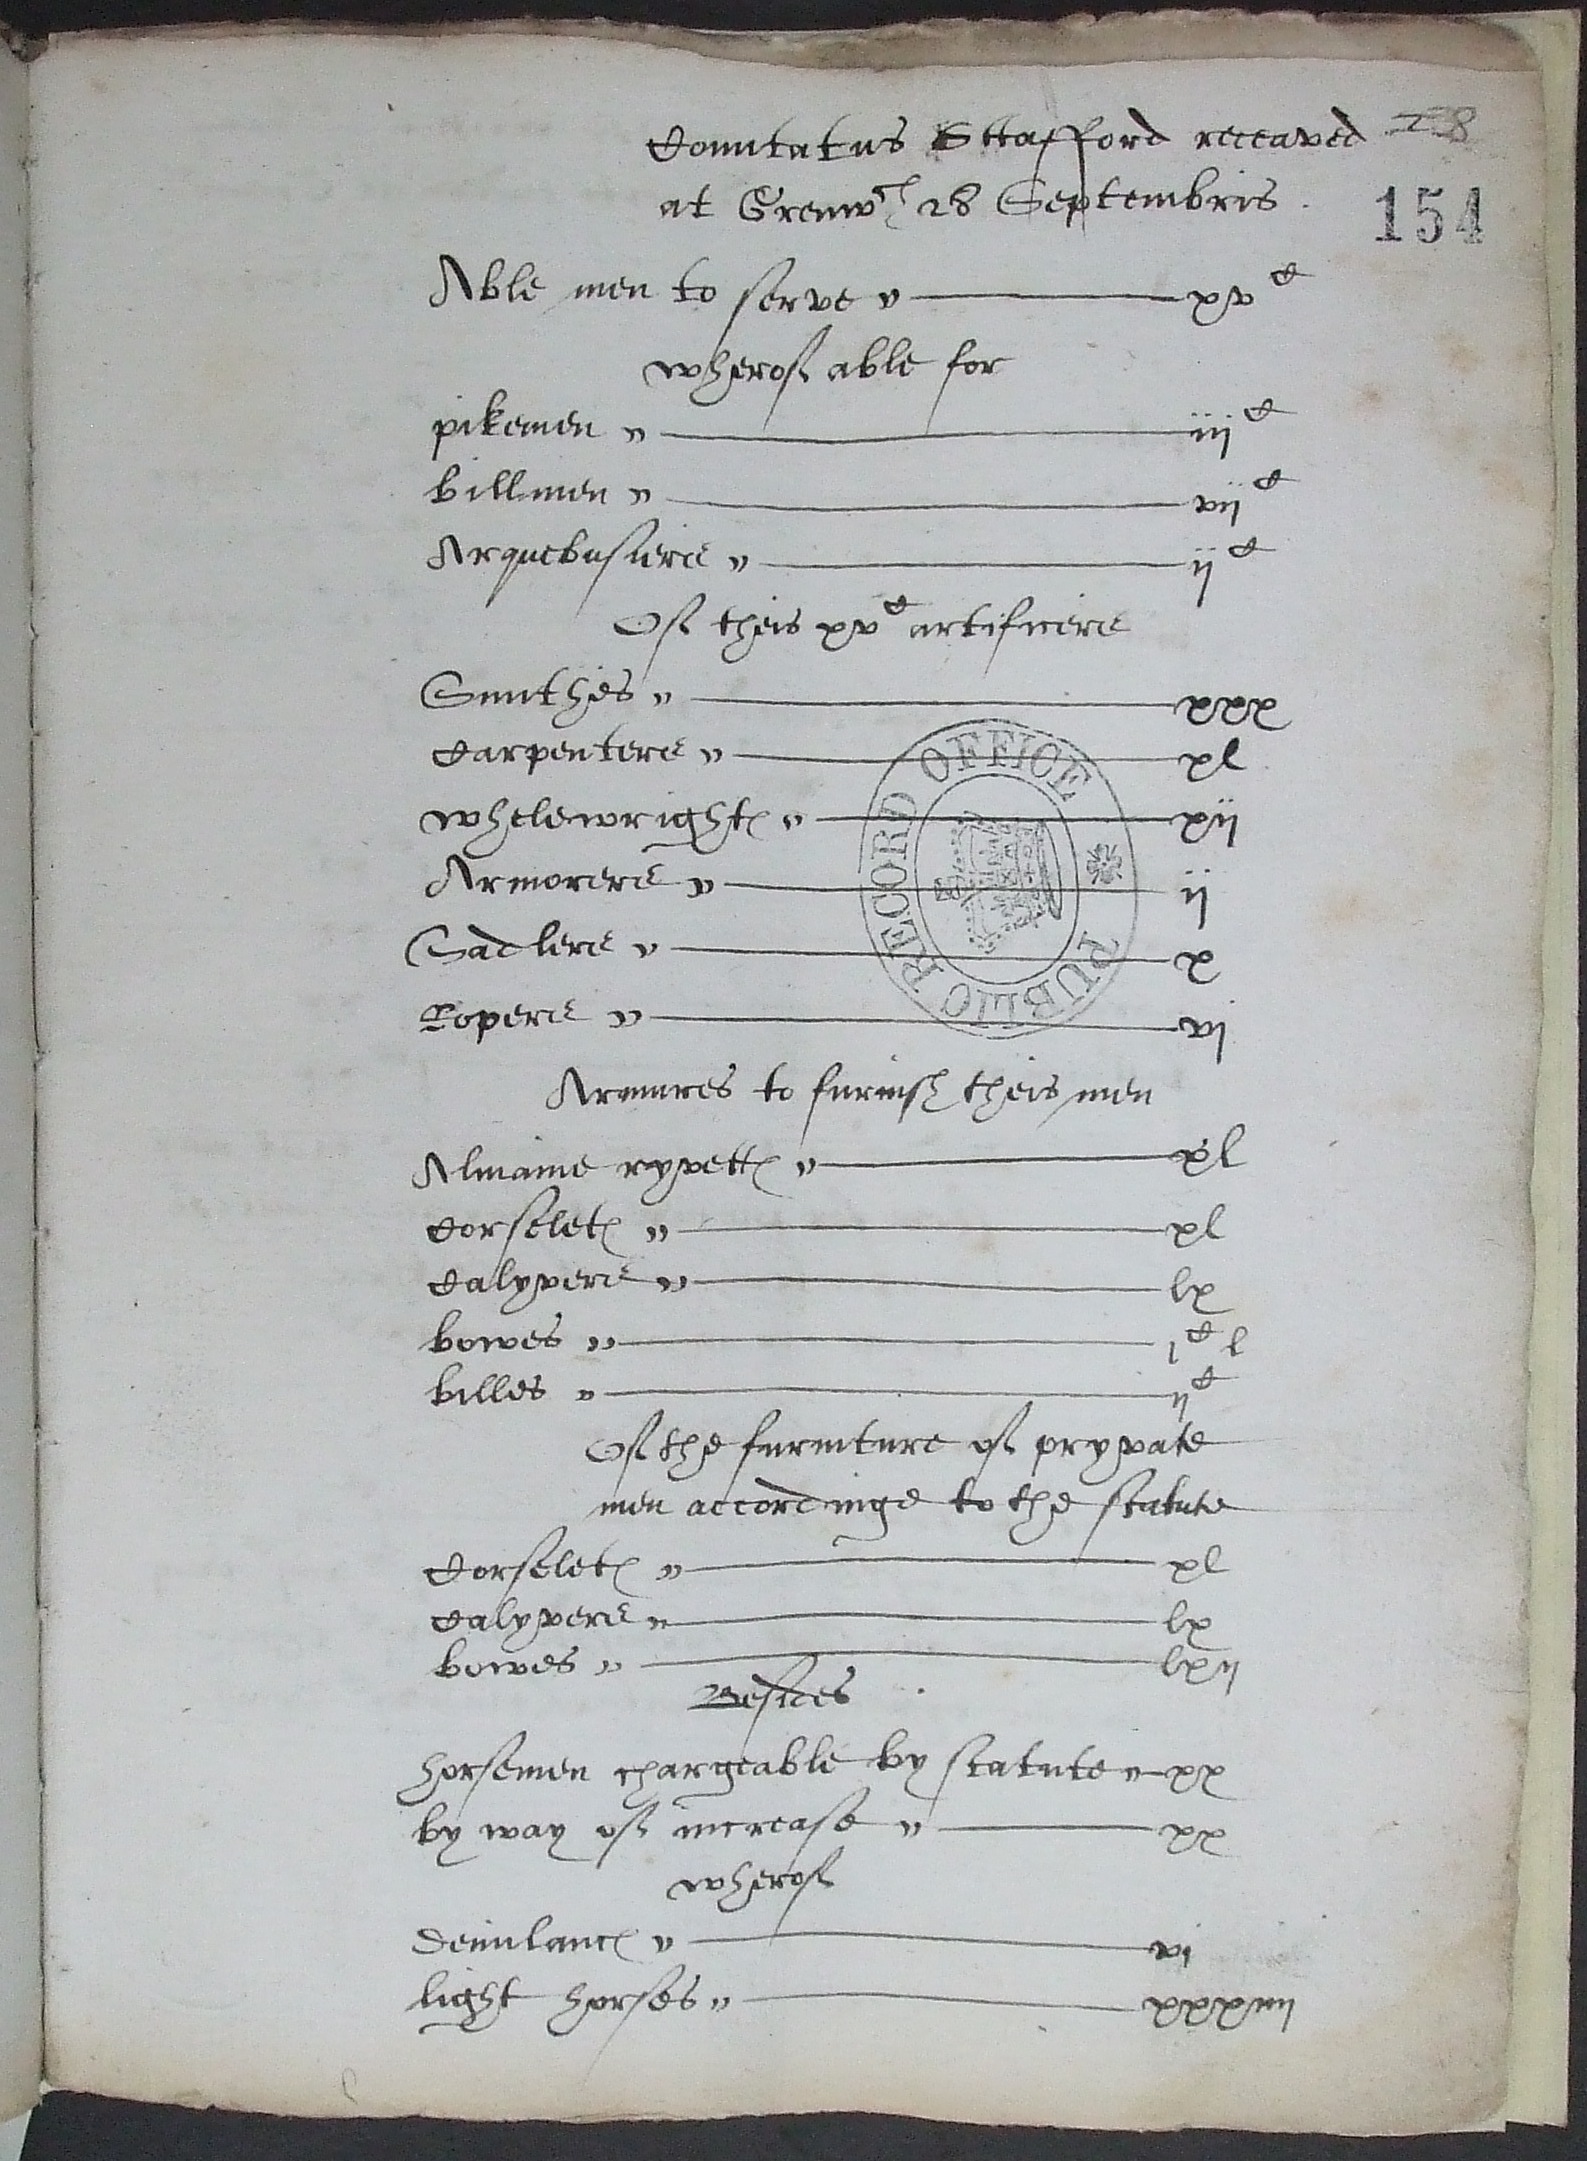 Comitatus Sttafford receaved
at Grenwch 28 Septembris.
154
Able men to serve " xv c
wherof able for
pikemen " iij c
billmen " vij c
Arquebusiers " ij c
Of theis xv c artificers
Smithes " xxx
Carpenters " xl
whelewrightes " xij
Armorers " ij
Sadlers " x
Ropers " vj
Armures to furnish theis men
Almaine ryvettes " xl
Corseletes " xl
Calyvers " lx
bowes " j c l
billes " ij c
Of the furniture of pryvate
men accordinge to the statute
Corseletes " xl
Calyvers " lx
bowes " lxij
Besides
horsemen chargeable by statute " xx
by way of increase " xx
wherof
Demilances " vj
light horses " xxxiiij
PUBLIC RECORD OFFICE